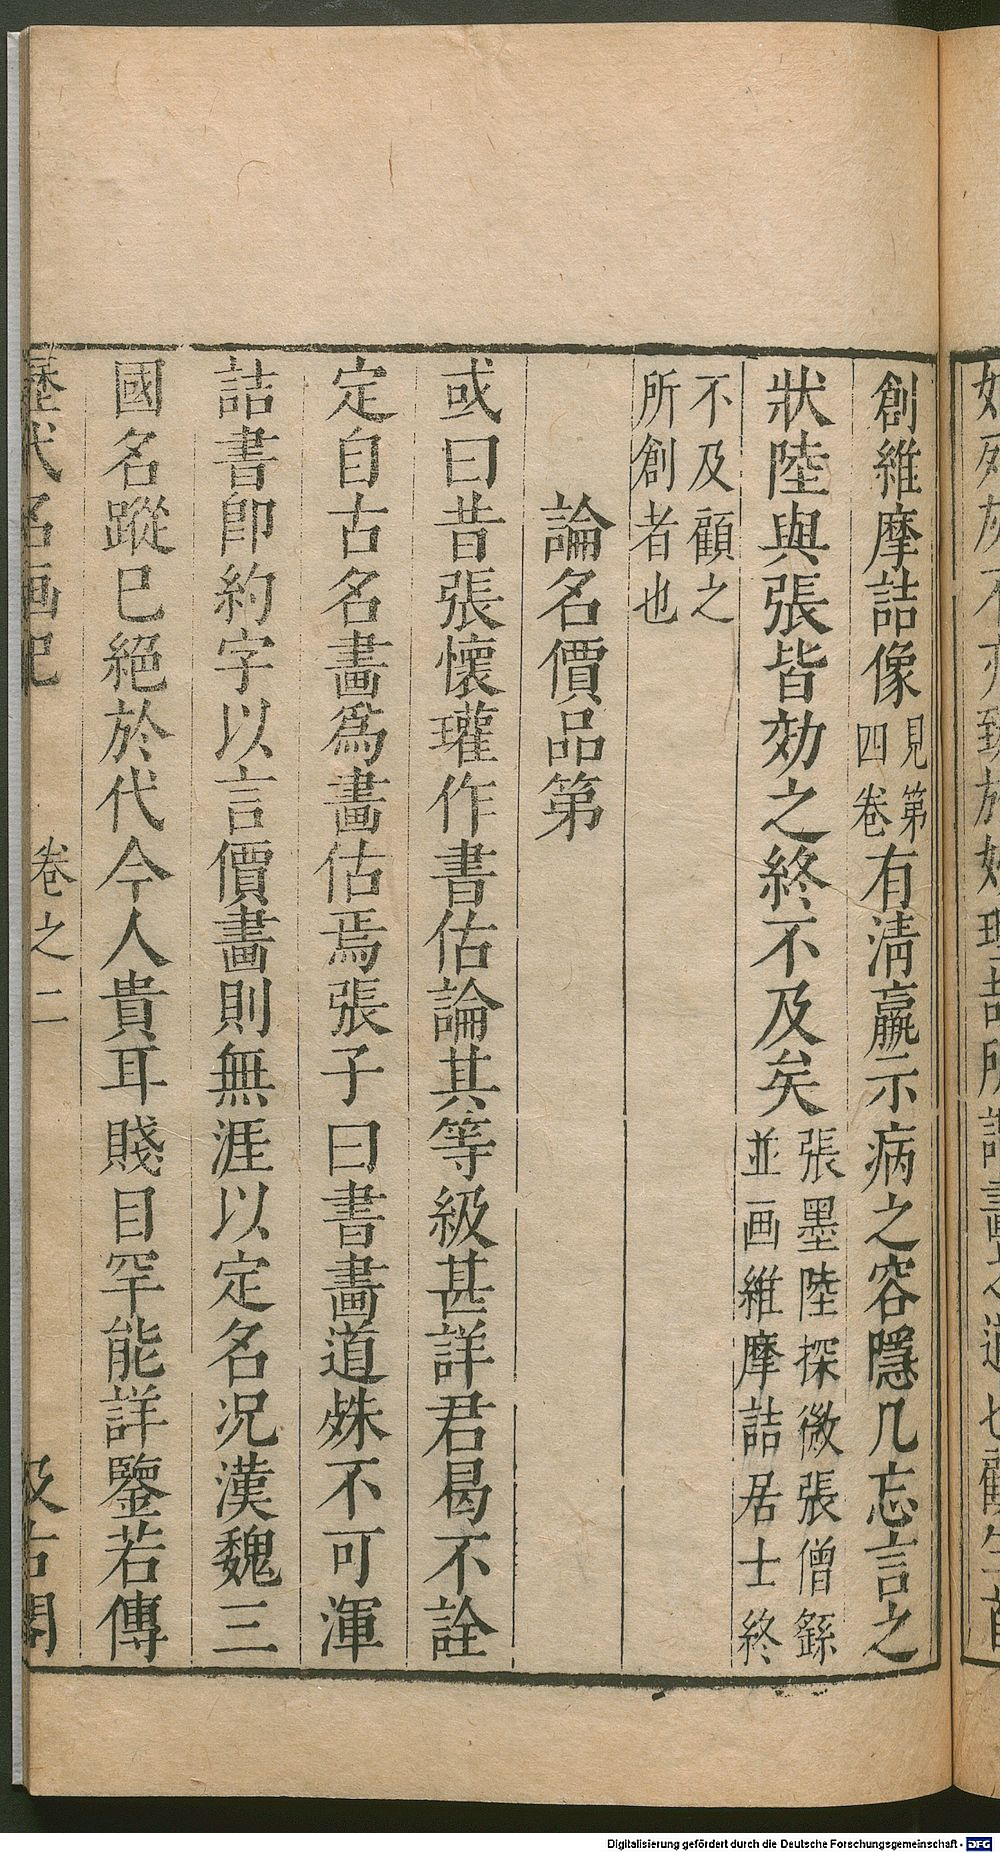 創維摩詰像見第四卷有淸羸示病之容隱几忘言之
狀陸與張皆効之終不及矣張墨陸探微張僧繇並画維摩詰居士終
不及顧之所創者也
論名價品第
或曰昔張懷瓘作書估論其等級甚詳君曷不詮
定自古名畫爲畫估焉張子曰書畫道殊不可渾
詰書卽約字以言價畫則無涯以定名况漢魏三
國名蹤巳絕於代今人貴耳賤目罕能詳鑒若傳
歷代名画記 卷之二 汲古閣
Digitalisierung gefördert durch die Deutsche Forschungsgemeinschaft - DFG